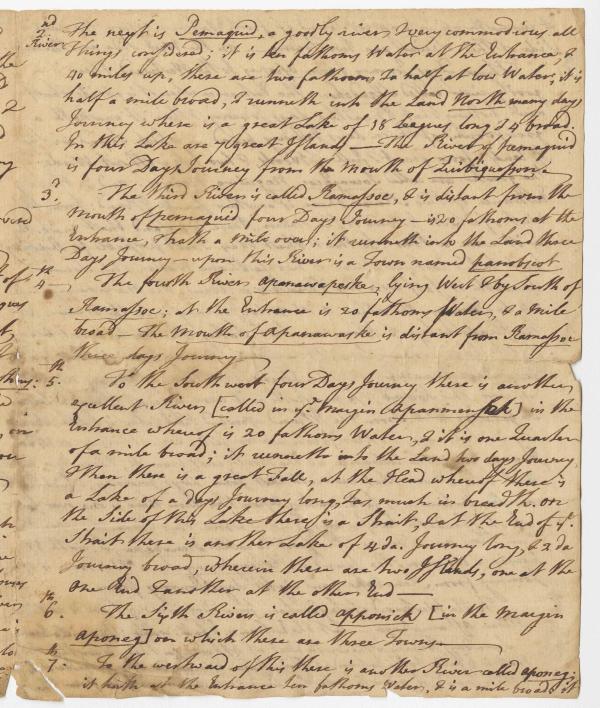 2nd River The next is Pemaquid, a goodly river & very commodious all
things considered; it is ten fathoms Water at the Entrance, &
40 miles up, there are two fathoms & a half at low Water; it is
half a mile broad, & runneth into the Land North many days
Journey where is a great Lake of 18 Leagues long & 4 broad.
In this Lake are 7 great Islands — The River of Pemaquid
is four Days Journey from the Mouth of Quibiquesson.
3d. The third River is called Ramassoc, & is distant from the
Mouth of pemaquid four Days Journey — is 20 fathoms at the
Entrance, & hath a Mile over; it runneth into the Land three
Days Journey — upon this River is a Town named panobscot
4th The fourth River apanawapeske, lying West & by South of
Ramassoc; at the Entrance is 20 fathoms Water, & a Mile
broad — The Mouth of Apanawaske is distant from Ramassoc
three days Journey
5th. To the Southwest four Days Journey there is another
excellent River [called in ye. Margin apanmensek] in the
Entrance whereof is 20 fathoms Water, & it is one Quarter
of a mile broad; it runneth into the Land two days Journey,
& than there is a great Fall, at the Head whereof there is
a Lake of a days Journey long, & as much in breadth. on
the Side of this Lake there is a Strait, & at the End of ye.
Strait there is another Lake of 4 da. Journey long, & 2 da
Journey broad, wherein there are two Islands, one at the
one End & another at the other End —
6th. The Sixth River is called apponick [in the Margin
aponeg] on which there are three Towns
7th. To the westward of this there is another River called aponeg;
it hath at the Entrance ten fathoms Water, & is a mile broad; it